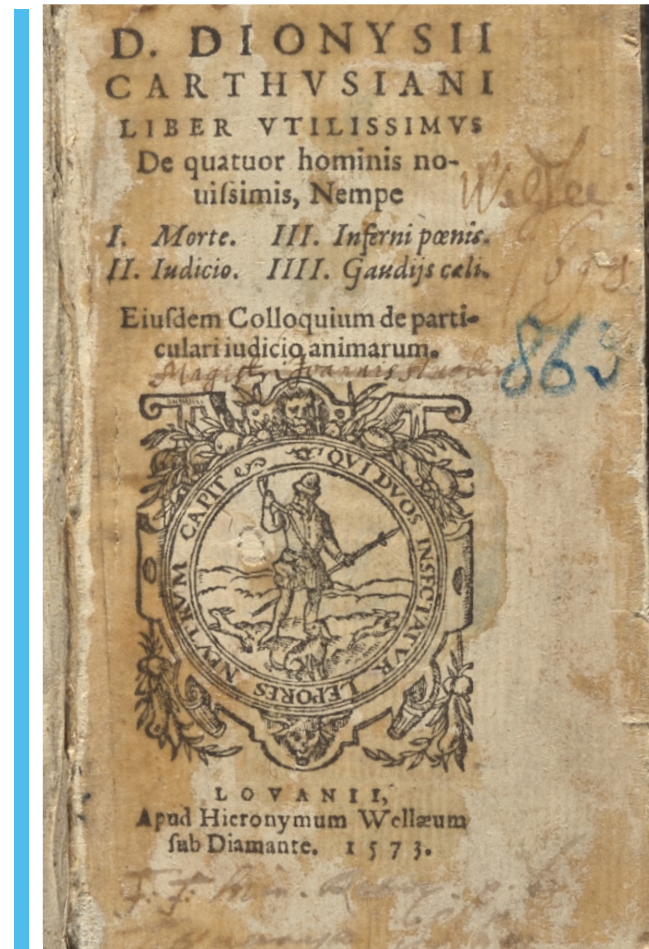 D. DIONYSII
CARTHVSIANI
LIBER VTILISSIMVS
De quatuor hominis no-
uiſsimis, Nempe
I. Morte. III. Inferni pœnis.
II. Iudicio. IIII. Gaudijs cœli.
Eiuſdem Colloquium de parti-
culari iudicio animarum.
Magistri Joannis
862
QVI DVOS INSECTATVR LEPORES NEVTRVM CAPIT
LOVANII,
Apud Hieronymum Wellæum
ſub Diamante. 1573.